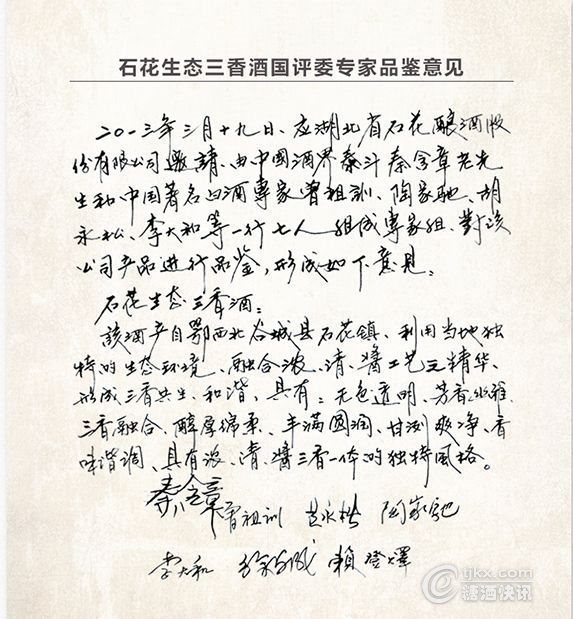 石花生态三香酒国评委专家品鉴意见
二〇一三年三月十九日、应湖北省石花酿酒股
份有限公司邀請、由中國酒界泰斗秦含章老先
生和中国著名白酒專家曾祖訓、陶家馳、胡
永松、李大和等一行七人組成專家組、對該
公司产品進行品鉴，形成如下意見：
石花生态三香酒：
該酒产自鄂西北谷城县石花镇、利用当地独
特的生态环境、融合浓、清、醬工艺之精华、
形成三香共生、和谐、具有：无色透明、芳香幽雅、
三香融合、醇厚绵柔、丰满圆润、甘冽爽净、香
味谐调、具有浓、清、醬三香一体的独特风格。
秦含章
曾祖训 陶家驰
李大和 賴登燡
tjkx.com
糖酒快讯